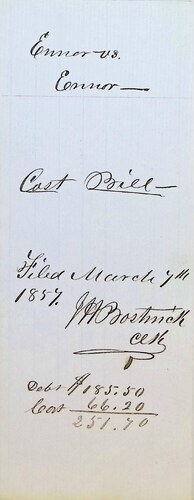 Ennor vs.
Ennor—
Cost Bill—
Filed March 7th
1857.
J H Bostwick
Clk
Debt $185.50
Cost 66.20
251.70